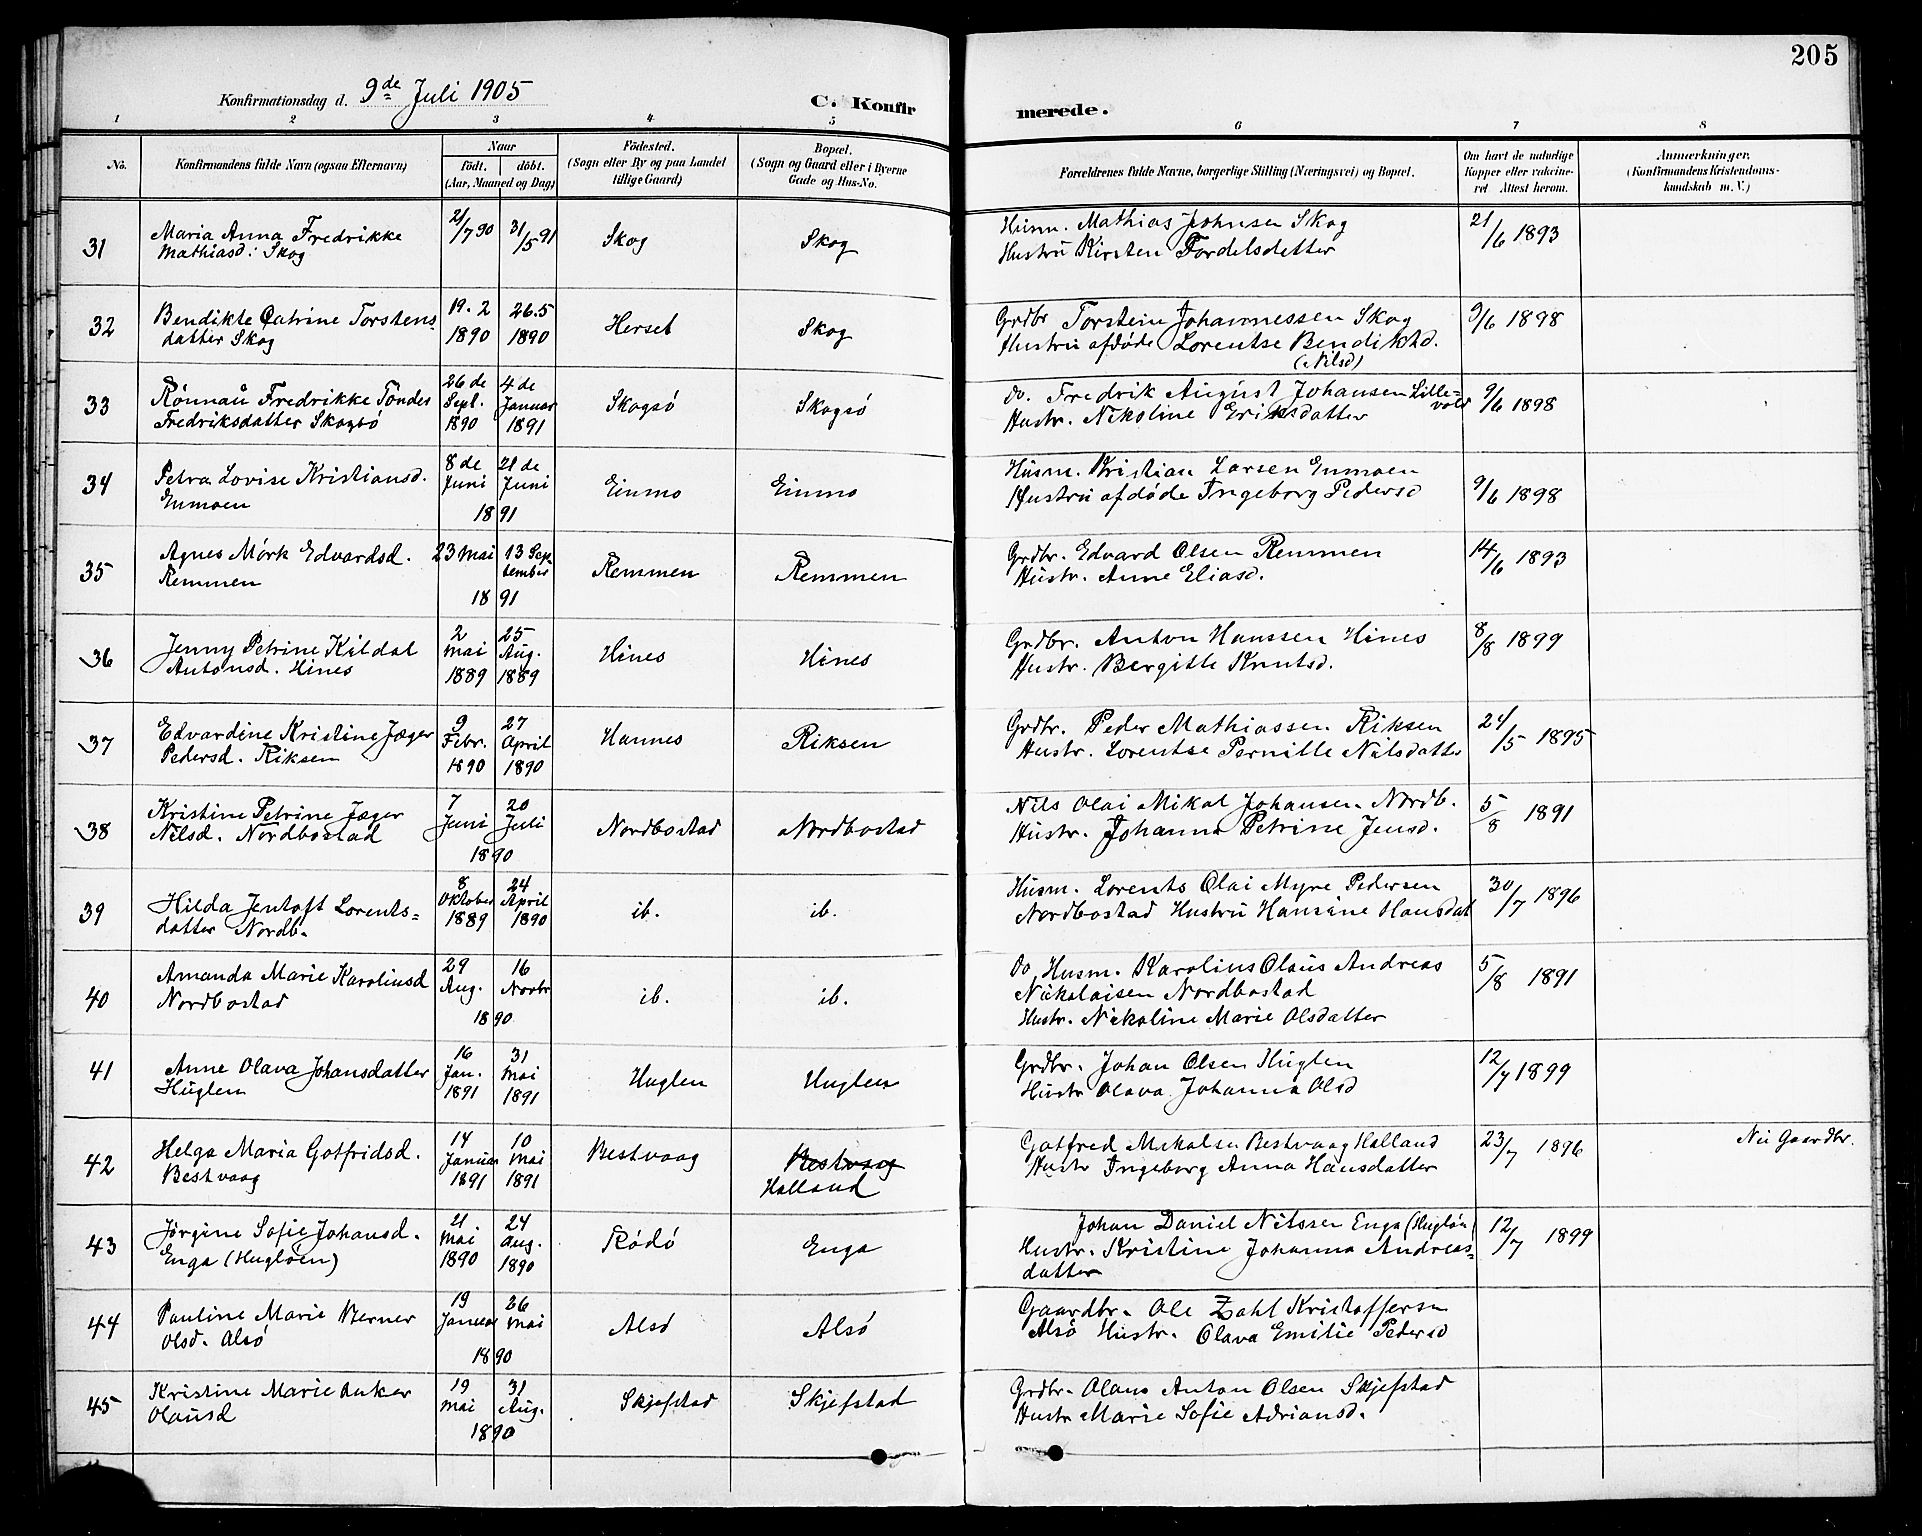 205
Konfirmationsdag d. 9de Juli 1905
C. Konfirmerede.
1 2 3 4 5 6 7 8
No. Konfirmandens fulde Navn (ogsaa Efternavn) Naar født. døbt. (Aar, Maaned og Dag) Fødested. (Sogn eller By og paa Landet tillige Gaard) Bopæl. (Sogn og Gaard eller i Byerne Gade og Hus-No. Forældrenes fulde Navne, borgerlige Stilling (Næringsvei) og Bopæl. Om havt de naturlige Kopper eller vakcineret Attest herom. Anmærkninger. (Konfirmandens Kristendomskundskab m. V.)
31 Maria Anna Fredrikke 21/7 90 31/5 91 Skog Skog Husm. Mathias Johnsen Skog 21/6 1893
Mathiasd: Skog Hustru Kirsten Tordelsdetter
32 Bendikte Catrine Torstens 19.2 1890 26.5 1890 Herset Skog Grdbr Torstein Johannessen Skog 9/6 1898
datter Skog Hustru afdøde Lorentse Bendiktd.
(Nilsd)
33 Rönnaü Fredrikke Töndes 26 de Sept. 1890 4 de Januar 1891 Skogsö Skogsö do. Fredrik August Johansen Lillevold 9/6 1898
Fredriksdatter Skogsö Hustr. Nekoline Eriksdatter
34 Petra Lovise Kristiansd. 8 de Juni 21 de Juni 1891 Einmo Einmo Husm. Kristian Larsen Enmoen 9/6 1898
Enmoen Hustru afdøde Ingeborg Pedersd
35 Agnes Mörk Edvardsd. 23 Mai 13 September 1891 Remmen Remmen Grdbr. Edvard Olsen Remmen 14/6 1893
Remmen Hustr. Anne Eliasd.
36 Jenny Petrine Kildal 2 Mai 1889 25 Aug. 1889 Hines Hines Grdbr. Anton Hanssen Hines 8/8 1899
Antonsd. Hines Hustr. Bergitte Knutsd.
37 Edvardine Kristine Jæger 9 Febr. 1890 27 April 1890 Hannes Riksen Grdbr. Peder Mathiassen Riksen 24/5 1895
Pedersd. Riksen Hustr. Lorentse Pernille Nilsdatter
38 Kristine Petrine Jæger 7 Juni 20 Juli 1890 Nordbostad Nordbostad Nils Olai Mikal Johansen Nordb. 5/8 1891
Nilsd. Nordbostad Hustr. Johanna Petrine Jensd.
39 Hilda Jentoft Lorents= 8 Oktober 1889 24 April 1890 ib. ib. Husm. Lorents Olai Myre Pedersen 30/7 1896
datter Nordb. Nordbostad Hustru Hansine Hansdat
40 Amanda Marie Karoliusd 29 Aug. 16 Novbr 1890 ib. ib. Do Husm. Karolius Olaus Andreas 5/8 1891
Nordbostad Nickolaisen Nordbostad
Hustr. Nickoline Marie Olsdatter
41 Anne Olava Johansdatter 16 Jan. 1891 31 Mai 1891 Huglen Huglen Grdbr. Johan Olsen Huglen 12/7 1899
Huglen Hustr Olava Johanna Olsd
42 Helga Maria Gotfridsd. 14 Januar 1891 10 Mai 1891 Bestvaag Bestvaag Halland Gotfred Mikalsen Bestvaag Halland 23/7 1896 Nu Gaardbr.
Bestvaag Hustr Ingeborg Anna Hansdatter
43 Jørgine Sofie Johansd. 21 Mai 1890 24 Aug. 1890 Rödö Enga Johan Daniel Nilssen Enga (Huglöen) 12/7 1899
Enga (Huglöen) Hustr. Kristine Johanna Andreas=
datter
44 Pauline Marie Berner 19 Januar 26 Mai 1890 Alsö Alsö Gaardbr. Ole Zahl Kristoffersen
Olsd. Alsö Alsö Hustr. Olava Emilie Pedersd
45 Kristine Marie Anker 19 Mai 31 Aug. 1890 Skjefstad Skjefstad Grdbr. Olaus Anton Olsen Skjefstad
Olausd Hustr Marie Sofie Adriansd.